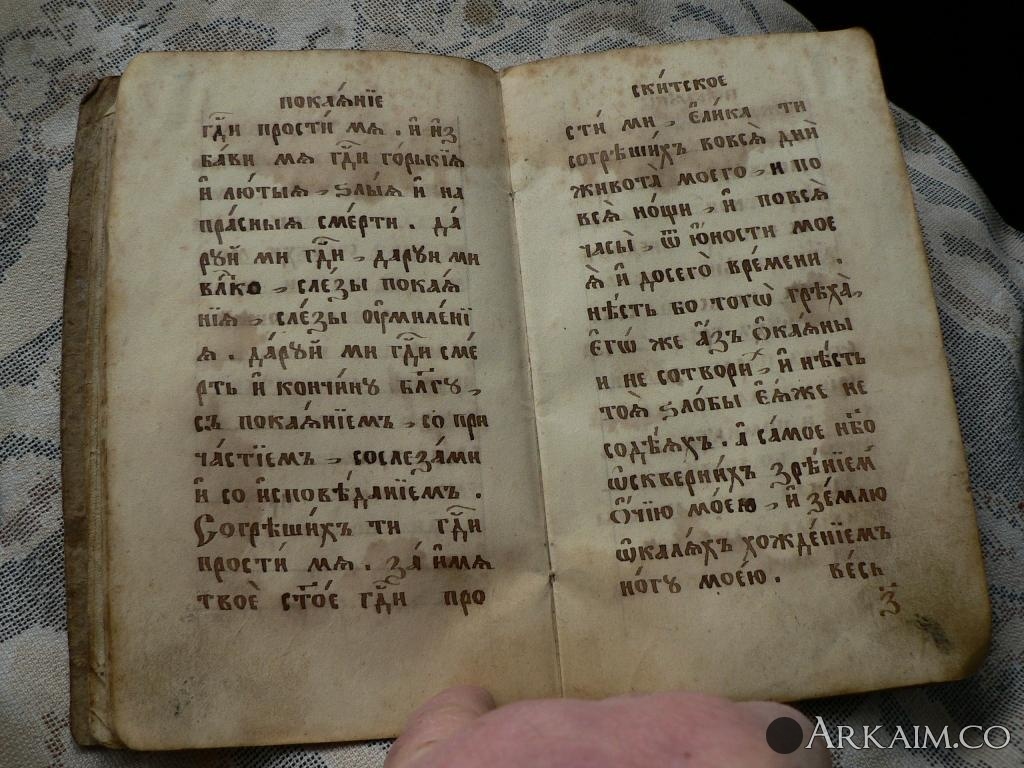 покаѧ́нїе
гдⷭ҇и прости́ мѧ . и҆ и҆з
ба́ви мѧ гдⷭ҇и го́рькїѧ
и҆ лю́тыѧ , ѕлы́ѧ и҆ на
пра́сныѧ сме́рти . да́
руй ми гдⷭ҇и , даруи ми
влⷣко , сле́зы покаѧ́
нїѧ , сле́зы оумиле́нї
ѧ . да́руй ми гдⷭ҇и сме́
рть и҆ кончи́ну блгⷭ҇у ,
съ покаѧ́нїемъ , со при
ча́стїемъ , сослеза́ми
и҆ со и҆сповѣ́данїемъ .
Согрѣши́хъ ти гдⷭ҇и
прости́ мѧ . за́ и҆мѧ
твоѐ ст҃о́е гдⷭ҇и про
ски́тское
сти́ ми , е҆ли́ка ти
согрѣши́хъ вовсѧ̀ дни̑
живота̀ моего̀ , и по
всѧ̀ но́щи , и҆ повсѧ̀
часы̀ , ѿ ю҆́ности мое
ѧ̀ и҆ досего̀ вре́мени .
нѣ́сть бо тогѡ̀ грѣха̀ ,
е҆гѡ́ же а҆́зъ ѻ҆каѧ́ны
и не сотвори́ , и҆ нѣ́сть
тоѧ̀ ѕло́бы е҆ѧ́же не
содѣ́ѧхъ . а҆ са́мое нб҃о
ѡ҆скверни́хъ зрѣ́нїемъ
ѻ҆́чїю мое́ю , и҆ зе́млю
ѡ҆калѧ́хъ хожде́нїемъ
но́гу мое́ю . ве́сь
з҃
ARKAIM.CO